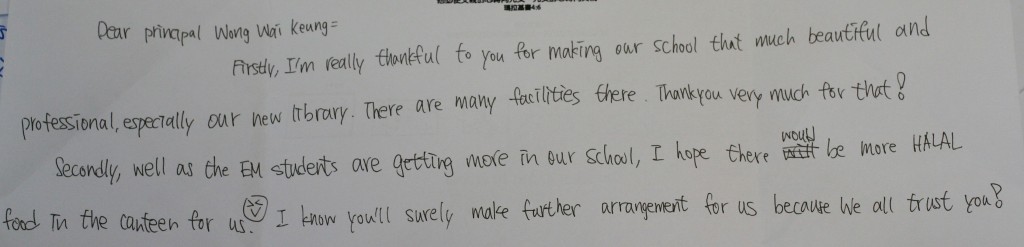 瑪拉基書4:6
Dear principal Wong Wai Keung=
Firstly, I'm really thankful to you for making our school that much beautiful and
professional, especially our new library. There are many facilities there. Thankyou very much for that!
Secondly, well as the EM students are getting more in our school, I hope there would be more HALAL
food in the canteen for us. I know you'll surely make further arrangement for us because we all trust you!